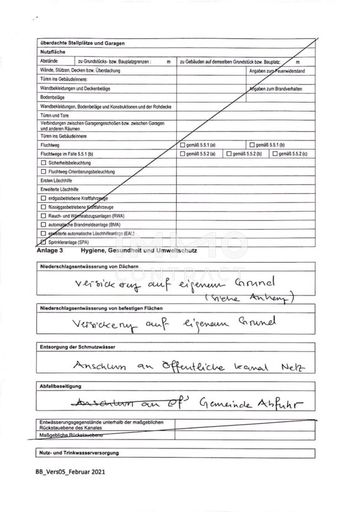 überdachte Stellplätze und Garagen
Nutzfläche
Abstände zu Grundstücks- bzw. Bauplatzgrenzen : m zu Gebäuden auf demselben Grundstück bzw. Bauplatz: m
Wände, Stützen, Decken bzw. Überdachung Angaben zum Feuerwiderstand
Türen ins Gebäudeinnere
Wandbekleidungen und Deckenbeläge Angaben zum Brandverhalten
Bodenbeläge
Wandbekleidungen, Bodenbeläge und Konstruktionen und der Rohdecke
Türen und Tore
Verbindungen zwischen Garagengeschoßen bzw. zwischen Garagen
und anderen Räumen
Türen ins Gebäudeinnere
Fluchtweg gemäß 5.5.1 (a) gemäß 5.5.1 (b)
Fluchtwege im Falle 5.5.1 (b) gemäß 5.5.2 (a) gemäß 5.5.2 (b) gemäß 5.5.2 (c)
Sicherheitsbeleuchtung
Fluchtweg Orientierungsbeleuchtung
Ersten Löschhilfe
Erweiterte Löschhilfe
erdgasbetriebene Kraftfahrzeuge
flüssiggasbetriebene Kraftfahrzeuge
Rauch- und Wärmeabzugsanlagen (RWA)
automatische Brandmeldeanlage (BMA)
erweiterte automatische Löschhilfeanlage (EAL)
Sprinkleranlage (SPA)
Anlage 3 Hygiene, Gesundheit und Umweltschutz
Niederschlagsentwässerung von Dächern
Versickerung auf eigenem Grund
(siehe Anhang)
Niederschlagsentwässerung von befestigten Flächen
Versickerung auf eigenem Grund
Entsorgung der Schmutzwässer
Anschluss an Öffentliche Kanal Netz
Abfallbeseitigung
Anschluss an Öf Gemeinde Abfuhr
Entwässerungsgegenstände unterhalb der maßgeblichen
Rückstauebene des Kanales
Maßgebliche Rückstauebene
Nutz- und Trinkwasserversorgung
BB_Vers05_Februar 2021